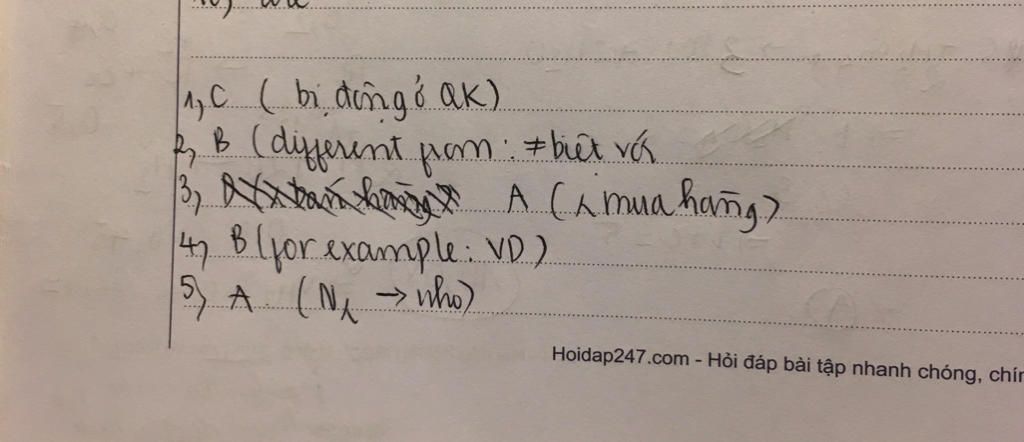 1, C ( bị động ở QK)
2, B (different from: ≠ biệt với
3, A (λ mua hàng)
4, B (for example: VD)
5, A (Nλ → nho)
Hoidap247.com - Hỏi đáp bài tập nhanh chóng, chín